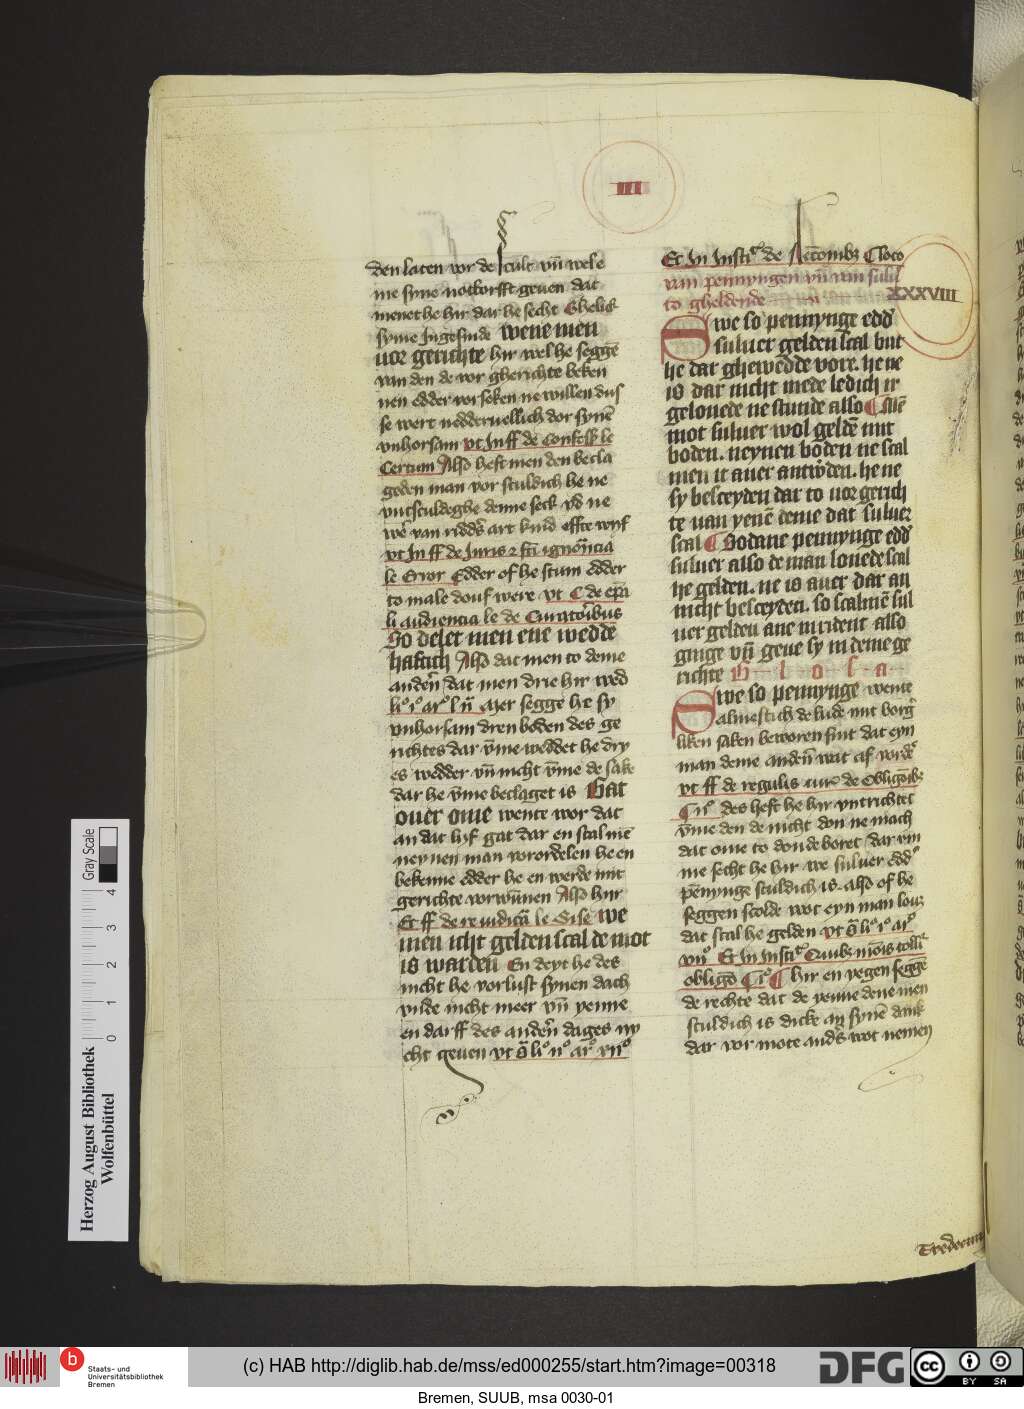 III
den laten vor de scult vn̄ wel e
me syne notlorfft geuen dat
menet he hir dar he secht Ghelik
syme Ingesinde wene men
uor gerichte hir wel he seggē
van den de vor gherichte beken
nen edder vorseken ne willen dus
se wert nedderuellich dor synē
vnhorsam vt In ff de confess le
Certum Also heft men den becla
geden man vor sculdich he ne
vntsculdeghe denne seck vd ne
wē van ridds art kind effte wyf
vt In ff de Iuris
le Error Edder of he stum edder
to male douf were vt C de
li audiencia le de Curatoribus
So delet men ene wedde
haftich Also dat men to deme
anden dat men drie hir wed
segge he sy
vnhorsam dren boden des ge
richtes dar vme weddet he dry
es wedder vn̄ nicht vme de sake
dar he vme beclaget is Gat
ouer ome wente vor dat
an dat lyf gat dar en scal mē
neynen man vorordelen he en
bekenne edder he en werde mit
gerichte vorwunnen Also hir
Et ff de re iudica le Si se we
men icht gelden scal de mot
is warden En deyt he des
nicht he vorlust synen dach
vnde nicht meer vn̄ yenne
en darff des anden dages ny
cht geuen vt
Et In Insti de C loco
van pennyngen vn̄ van sulu
to gheldende
XXXVIII
Swe so pennynge edd
suluer gelden scal but
he dar ghewedde vore. he ne
is dar nicht mede ledich ir
gelouede ne stunde also
mot suluer wol geldē mit
boden. neynen boden ne scal
men it auer antwden. he ne
sy besceyden dar to uor gerich
te uan yenē deme dat suluer
scal Sodane pennynge edd
suluer also de man louede scal
he gelden. ne is auer dar an
nicht besceyden. so scal mē sul
uer gelden ane mident also
ginge vn̄ geue sy in deme ge
richte Glosa
Swe so pennynge weme
almestich de lude mit borg
liken saken beworen sint dat eyn
man deme anden wat af
vt ff de regulis iur de
des heft he hir vntrichtet
vme den de nicht don ne mach
dat ome to donde boret dar vm
me secht he hir we suluer edd
pennynge sculdich is also of he
seggen scolde wot eyn man louz
dat scal he gelden vt
Et In Insti
obligo hir en vegen seggē
de rechte dat de yenne deme men
sculdich is dicke an synē dank
dar vor mote ands wot nemen
Gray Scale
0 1 2 3 4
Herzog August Bibliothek
Wolfenbüttel
Staats- und
Universitätsbibliothek
Bremen
(c) HAB http://diglib.hab.de/mss/ed000255/start.htm?image=00318
DFG
cc
BY SA
Bremen, SUUB, msa 0030-01